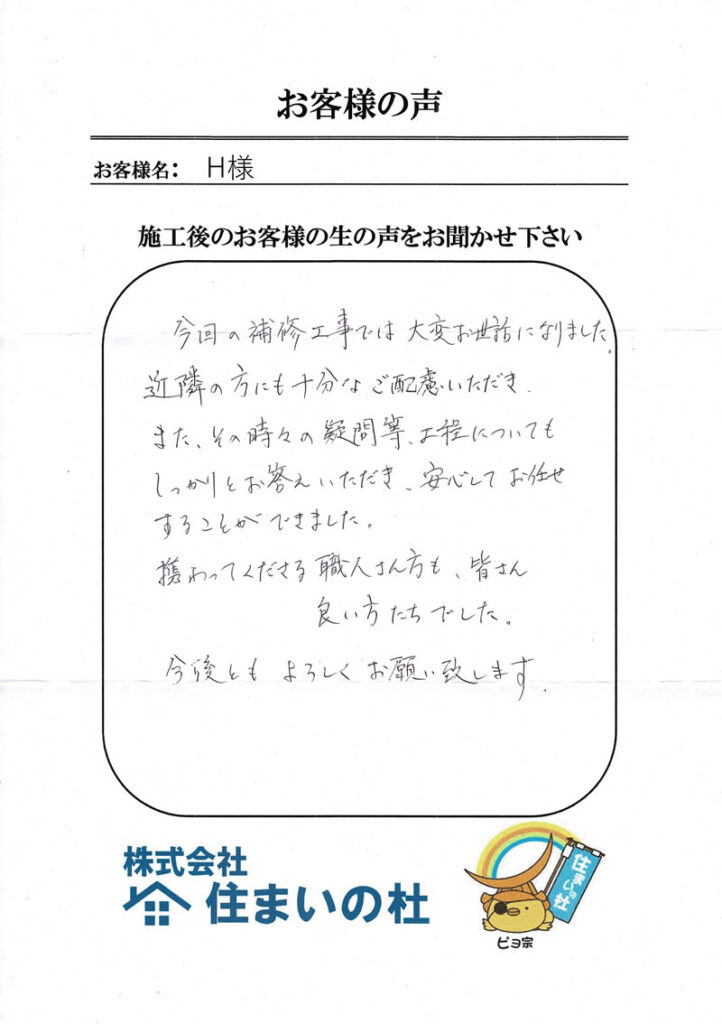 お客様の声
お客様名： H様
施工後のお客様の生の声をお聞かせ下さい
今回の補修工事では大変お世話になりました。
近隣の方にも十分なご配慮いただき、
また、その時々の疑問等、工程についても
しっかりとお答えいただき、安心してお任せ
することができました。
携わってくださる職人さん方も、皆さん
良い方たちでした。
今後ともよろしくお願い致します。
株式会社
住まいの杜
住まいの杜
ピヨ宗